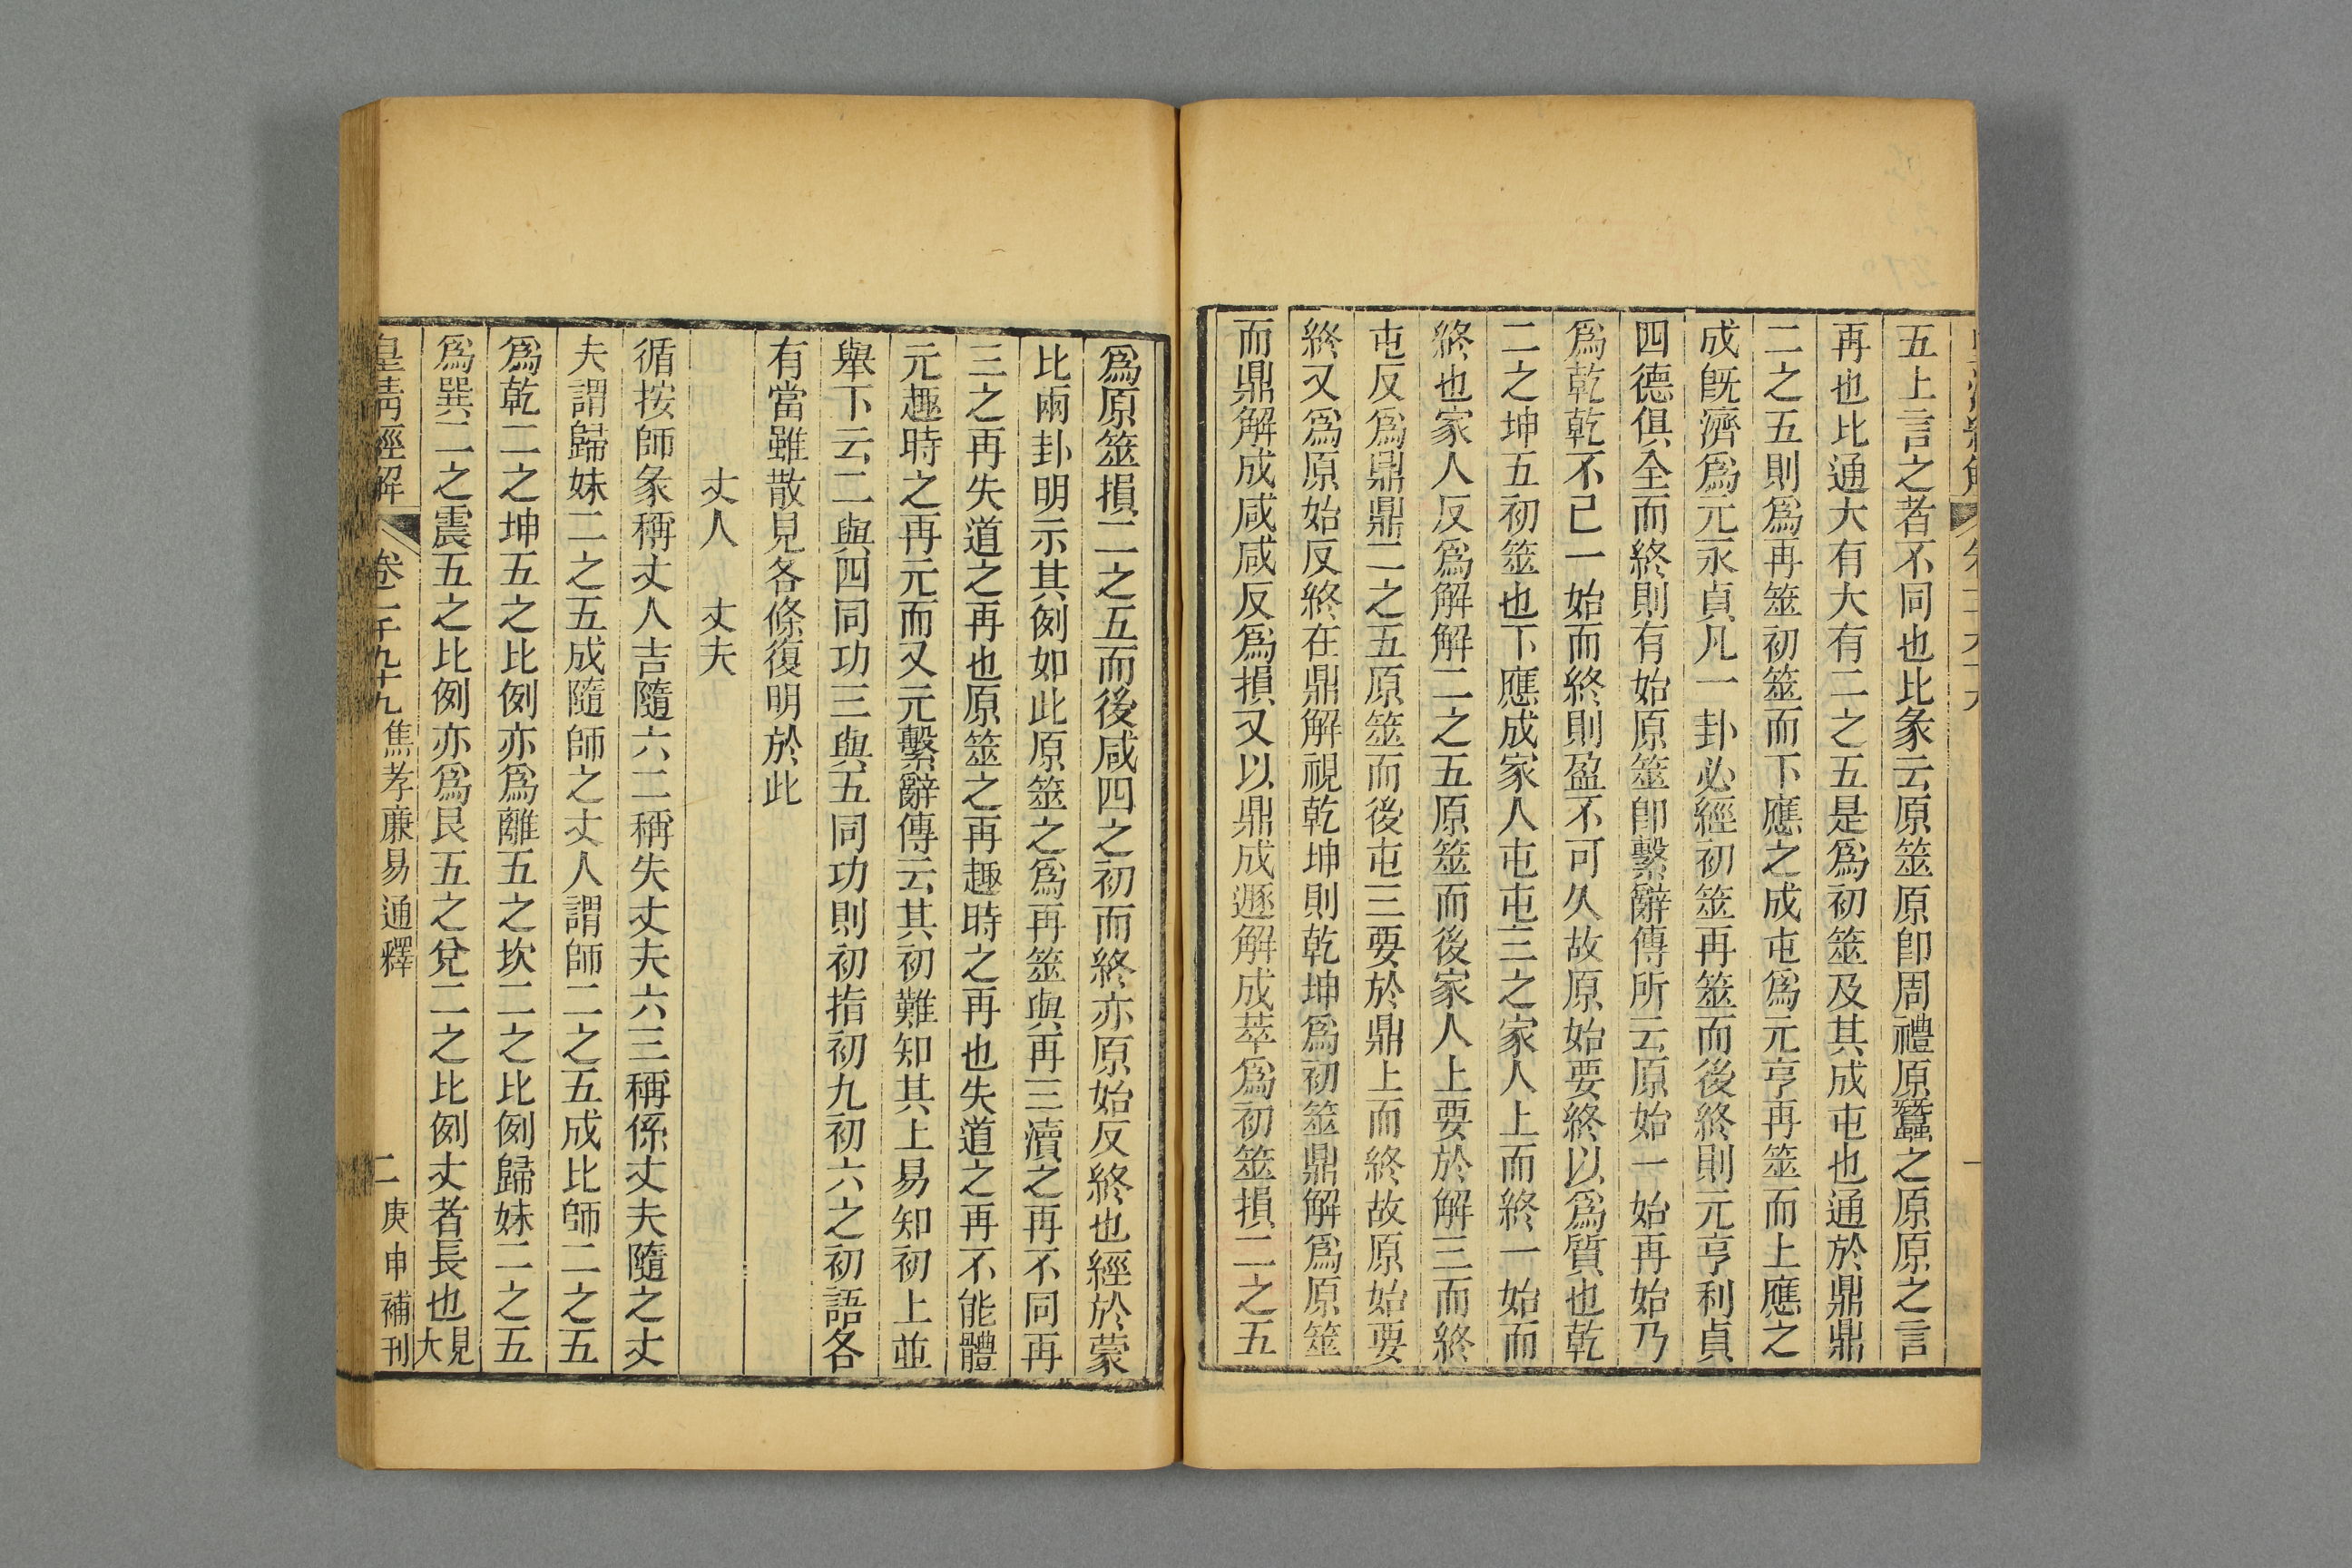 五上言之者不同也比彖云原筮原卽周禮原蠶之原原之言
再也比通大有大有二之五是爲初筮及其成屯也通於鼎鼎
二之五則爲再筮初筮而下應之成屯爲元亨再筮而上應之
成旣濟爲元永貞凡一卦必經初筮再筮而後終則元亨利貞
四德俱全而終則有始原筮卽繫辭傳所云原始一始再始乃
爲乾乾不已一始而終則盈不可久故原始要終以爲質也乾
二之坤五初筮也下應成家人屯屯三之家人上而終一始而
終也家人反爲解解二之五原筮而後家人上要於解三而終
屯反爲鼎鼎二之五原筮而後屯三要於鼎上而終故原始要
終又爲原始反終在鼎解視乾坤則乾坤爲初筮鼎解爲原筮
而鼎解成咸咸反爲損又以鼎成遯解成萃爲初筮損二之五
爲原筮損二之五而後咸四之初而終亦原始反終也經於蒙
比兩卦明示其例如此原筮之爲再筮與再三瀆之再不同再
三之再失道之再也原筮之再趣時之再也失道之再不能體
元趣時之再元而又元繫辭傳云其初難知其上易知初上並
舉下云二與四同功三與五同功則初指初九初六之初語各
有當雖散見各條復明於此
丈人　丈夫
循按師彖稱丈人吉隨六二稱失丈夫六三稱係丈夫隨之丈
夫謂歸妹二之五成隨師之丈人謂師二之五成比師二之五
爲乾二之坤五之比例亦爲離五之坎二之比例歸妹二之五
爲巽二之震五之比例亦爲艮五之兌二之比例丈者長也見大
皇清經解　卷一千九十九　焦孝廉易通釋　二　庚申補刊